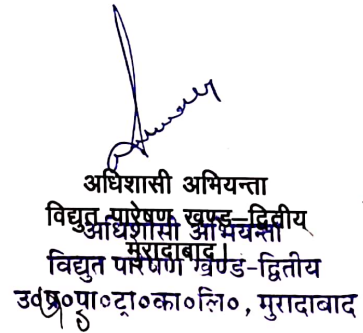 अधिशासी अभियन्ता
विद्युत पारेषण खण्ड-द्वितीय
मुरादाबाद।
अधिशासी अभियन्ता
विद्युत पारेषण खण्ड-द्वितीय
उ०प्र०पा०ट्रा०का०लि०, मुरादाबाद